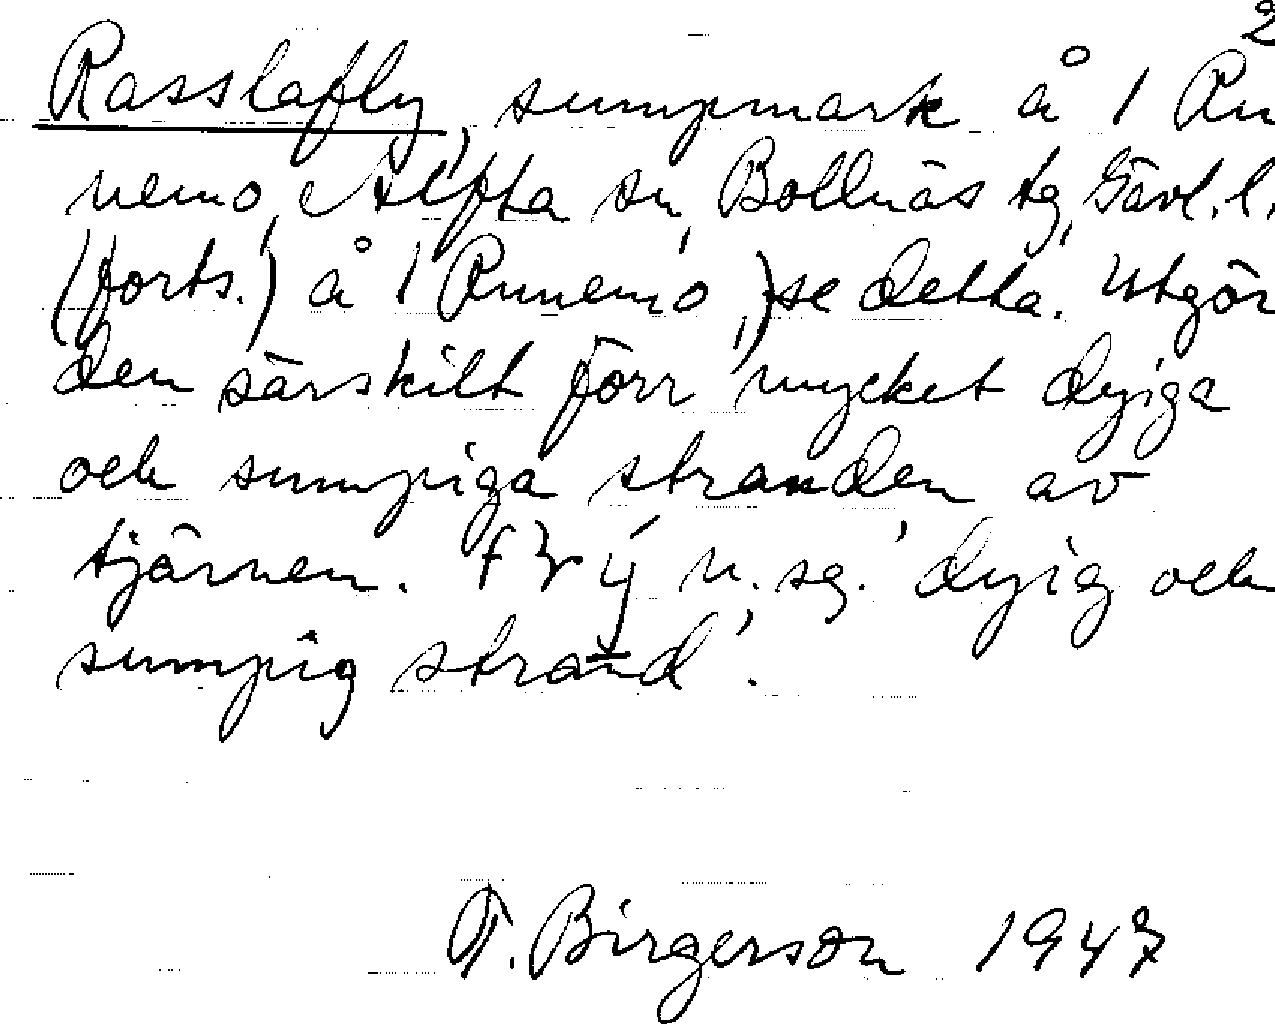 2
Rasslafly, sumpmark å 1 Ru
nemo, Alfta sn, Bollnäs tg, Gävl. l.
(forts.) å 1 Runemo,) se detta. Utgör
den särskilt förr mycket dyiga
och sumpiga stranden av
tjärnen. n. sg. 'dyig och
sumpig strand'.
T. Birgerson 1947